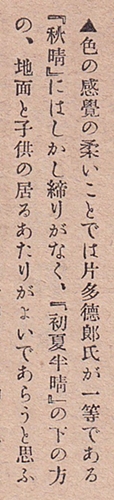 ▲色の感覺の柔いことでは片多德郎氏が一等である
『秋晴』にはしかし締りがなく、『初夏半晴』の下の方
の、地面と子供の居るあたりがよいであらうと思ふ